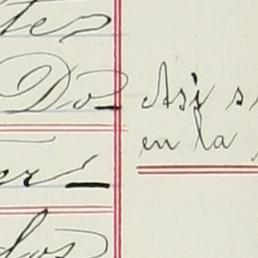 tes
Do Así s
en la
er
dos